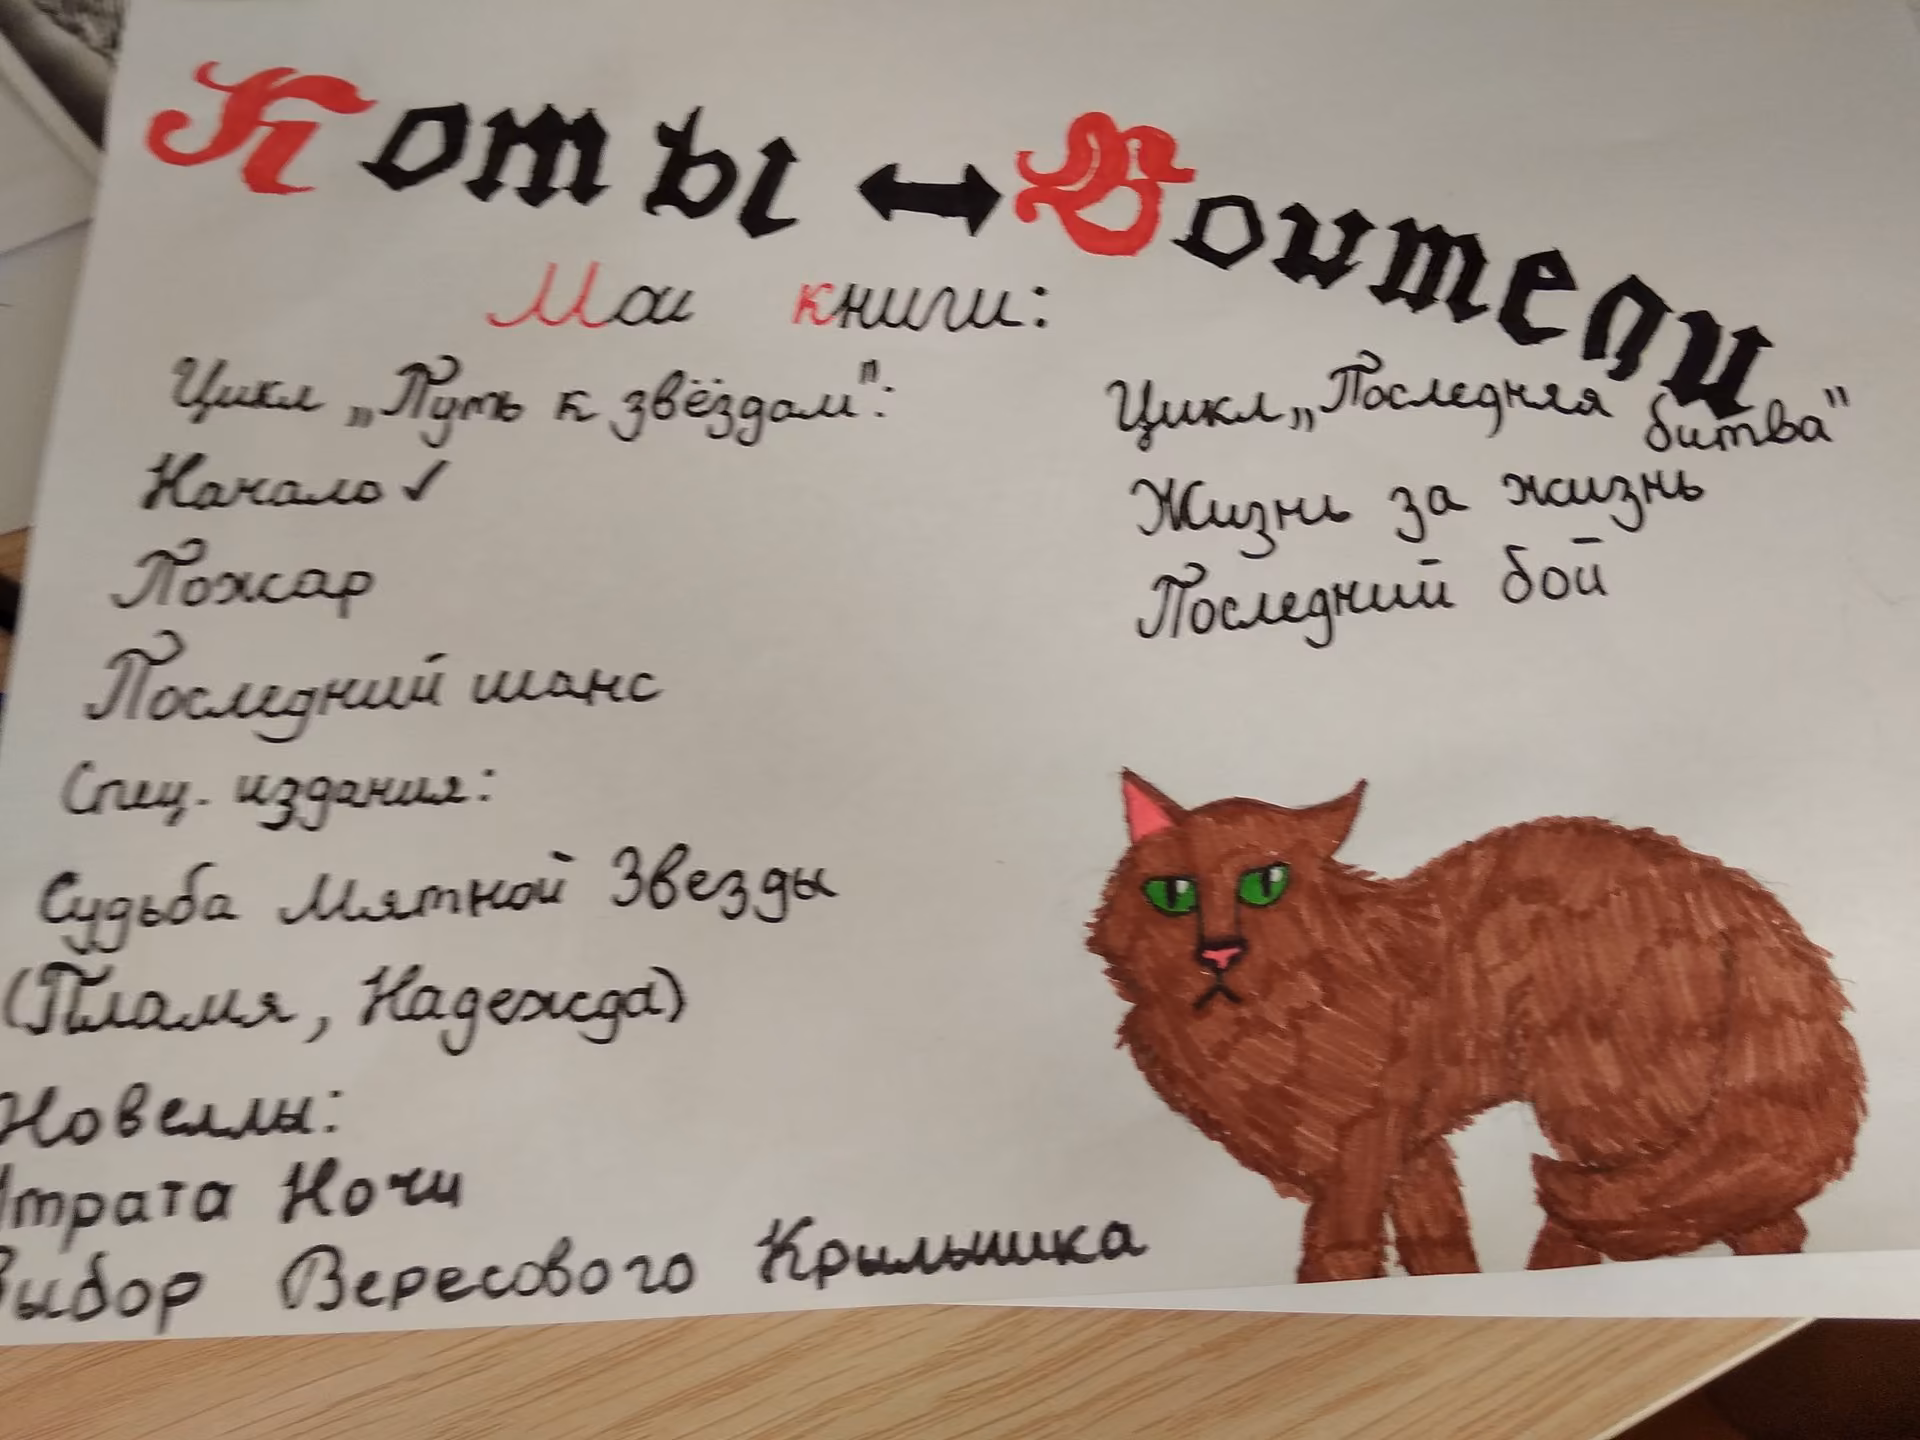 Коты ↔ Воители
Мои книги:
Цикл „Путь к звёздам":
Начало ✓
Пожар
Последний шанс
Спец. издания:
Судьба Мятной Звезды
(Пламя, Надежда)
Новеллы:
Утрата Ночи
Выбор Вересового Крылышка
Цикл „Последняя
битва"
Жизнь за жизнь
Последний бой